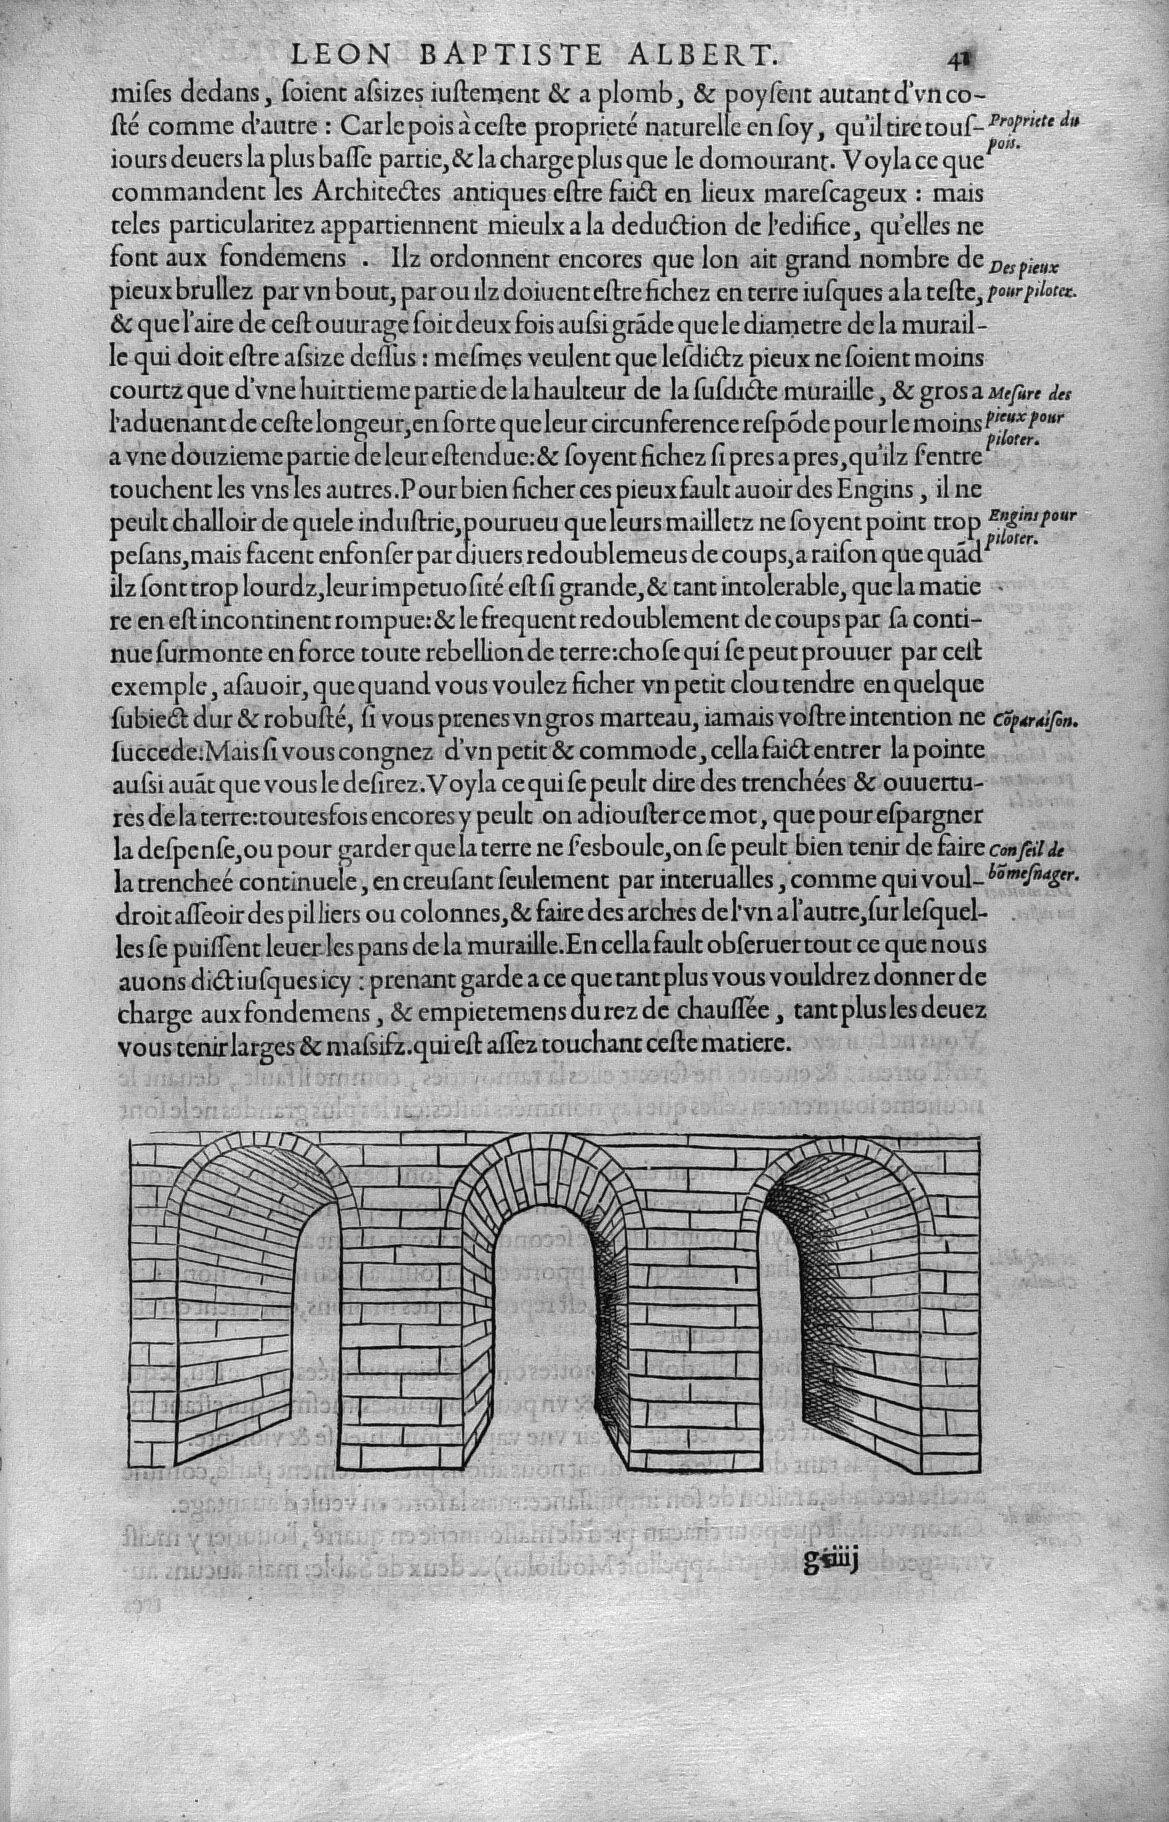 LEON BAPTISTE ALBERT. 41
miſes dedans, ſoient aſsizes iuſtement & a plomb, & poyſent autant d'vn co-
ſté comme d'autre : Car le pois à ceſte proprieté naturelle en ſoy, qu'il tire touſ-
Propriete du
pois.
iours deuers la plus baſſe partie, & la charge plus que le domourant. Voyla ce que
commandent les Architectes antiques eſtre faict en lieux mareſcageux : mais
teles particularitez appartiennent mieulx a la deduction de l'edifice, qu'elles ne
font aux fondemens . Ilz ordonnent encores que lon ait grand nombre de
Des pieux
pour piloter.
pieux brullez par vn bout, par ou ilz doiuent eſtre fichez en terre iuſques a la teſte,
& que l'aire de ceſt ouurage ſoit deux fois auſsi grãde que le diametre de la murail-
le qui doit eſtre aſsize deſſus : meſmes veulent que leſdictz pieux ne ſoient moins
courtz que d'vne huittieme partie de la haulteur de la ſuſdicte muraille, & gros a
Meſure des
pieux pour
piloter.
l'aduenant de ceſte longeur, en ſorte que leur circunference reſpõde pour le moins
a vne douzieme partie de leur eſtendue: & ſoyent fichez ſi pres a pres, qu'ilz ſ'entre
touchent les vns les autres. Pour bien ficher ces pieux fault auoir des Engins, il ne
peult challoir de quele induſtrie, pourueu que leurs mailletz ne ſoyent point trop
Engins pour
piloter.
peſans, mais facent enfonſer par diuers redoublemeus de coups, a raiſon que quãd
ilz ſont trop lourdz, leur impetuoſité eſt ſi grande, & tant intolerable, que la matie
re en eſt incontinent rompue: & le frequent redoublement de coups par ſa conti-
nue ſurmonte en force toute rebellion de terre: choſe qui ſe peut prouuer par ceſt
exemple, aſauoir, que quand vous voulez ficher vn petit clou tendre en quelque
ſubiect dur & robuſté, ſi vous prenes vn gros marteau, iamais voſtre intention ne
cõparaiſon.
ſuccede: Mais ſi vous congnez d'vn petit & commode, cella faict entrer la pointe
auſsi auãt que vous le deſirez. Voyla ce qui ſe peult dire des trenchées & ouuertu-
res de la terre: toutesfois encores y peult on adiouſter ce mot, que pour eſpargner
la deſpenſe, ou pour garder que la terre ne ſ'esboule, on ſe peult bien tenir de faire
Conſeil de
bõ meſnager.
la trencheé continuele, en creuſant ſeulement par interualles, comme qui voul-
droit aſſeoir des pilliers ou colonnes, & faire des arches de l'vn a l'autre, ſur leſquel-
les ſe puiſſent leuer les pans de la muraille. En cella fault obſeruer tout ce que nous
auons dict iuſques icy : prenant garde a ce que tant plus vous vouldrez donner de
charge aux fondemens, & empietemens du rez de chauſſée, tant plus les deuez
vous tenir larges & maſsifz. qui eſt aſſez touchant ceſte matiere.